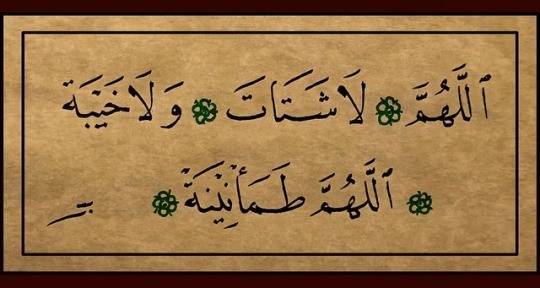 ٱللَّهُمَّ لَا شَتَاتَ وَلَا خَيْبَة
ٱللَّهُمَّ طَمَأْنِيْنَةً